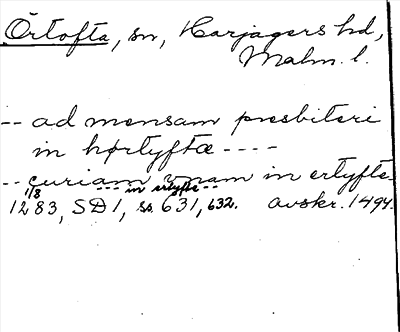 Örtofta, sn, Harjagers hd,
Malm. l.
-- ad mensam presbiteri
in hørtyftæ ----
-- curiam vnam in ertyfte
--- in ertyfte --
1/8
1283, SD 1, ss. 631, 632. avskr. 1494.